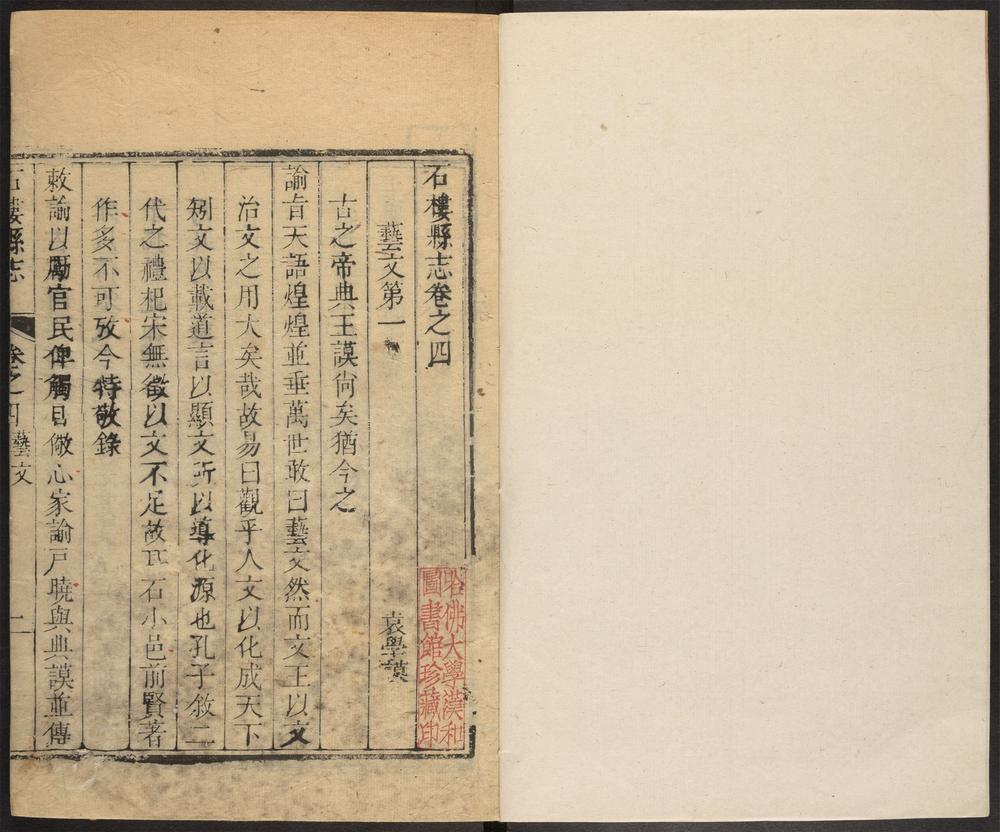 石樓縣志卷之四
藝文第一
袁學謨
古之帝典王謨尚矣猶今之
諭旨天語煌煌並垂萬世敢曰藝文然而文王以文
治文之用大矣哉故易曰觀乎人文以化成天下
矧文以載道言以顯文所以導化源也孔子敘二
代之禮杞宋無徵以文不足故耳石小邑前賢著
作多不可攷今特敬錄
敕諭以勵官民俾觸目儆心家諭戶曉與典謨並傳
石樓縣志
卷之四
藝文
二
哈佛大學漢和
圖書館珍藏印